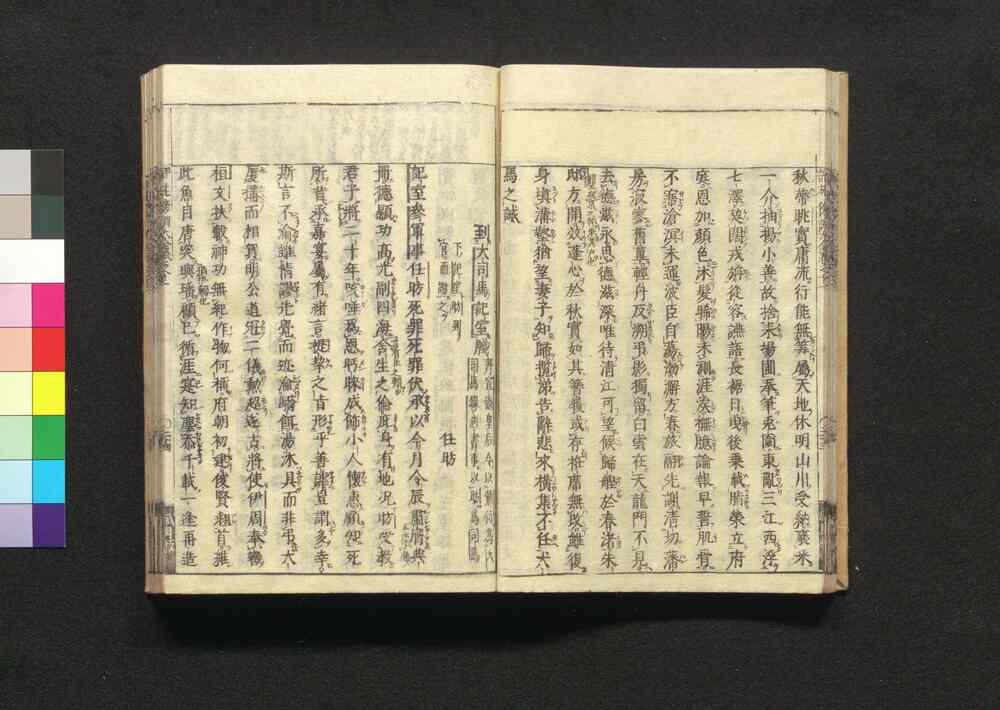 秋帶眺實庸流行能無筭屬天地休明山川受納裒采
一介抽揚小善故捨耒場圃奉筆兎園東亂三江西浮
七澤契闊戎旃從容讌語長裾日曳後乗載脂榮立府
庭恩加顔色沐髮晞陽未測涯涘撫臆論報早誓肌骨
不寤滄溟未運波臣自蕩渤澥方春旅翮先謝清切藩
房寂寥舊蓽輕舟反溯弔影獨留白雲在天龍門不見
去德滋永思德滋深唯待清江可望候歸艎於春渚朱
邸方開效蓬心於秋實如其簪履或存衽席無改雖復
身塡溝壑猶望妻子知歸攬涕告辭悲來横集不任犬
馬之誠
到大司馬記室牋
任昉
記室參軍事任昉死罪死罪伏承以今月令辰肅膺典
冊德顯功高光副四海含生之倫庇身有地况昉受教
君子將二十年咳唾爲恩眄睞成飾小人懷惠顧知死
所昔承嘉宴屬有緒言提挈之旨形乎善謔豈謂多幸
斯言不渝雖情謬先覺而迹淪驕餌湯沐具而非弔大
厦構而相賀明公道冠二儀勲超邃古將使伊周奉轡
桓文扶轂神功無紀作物何稱府朝初建俊賢翹首惟
此魚目唐突璵璠顧已循涯寔知塵忝千載一逢再造